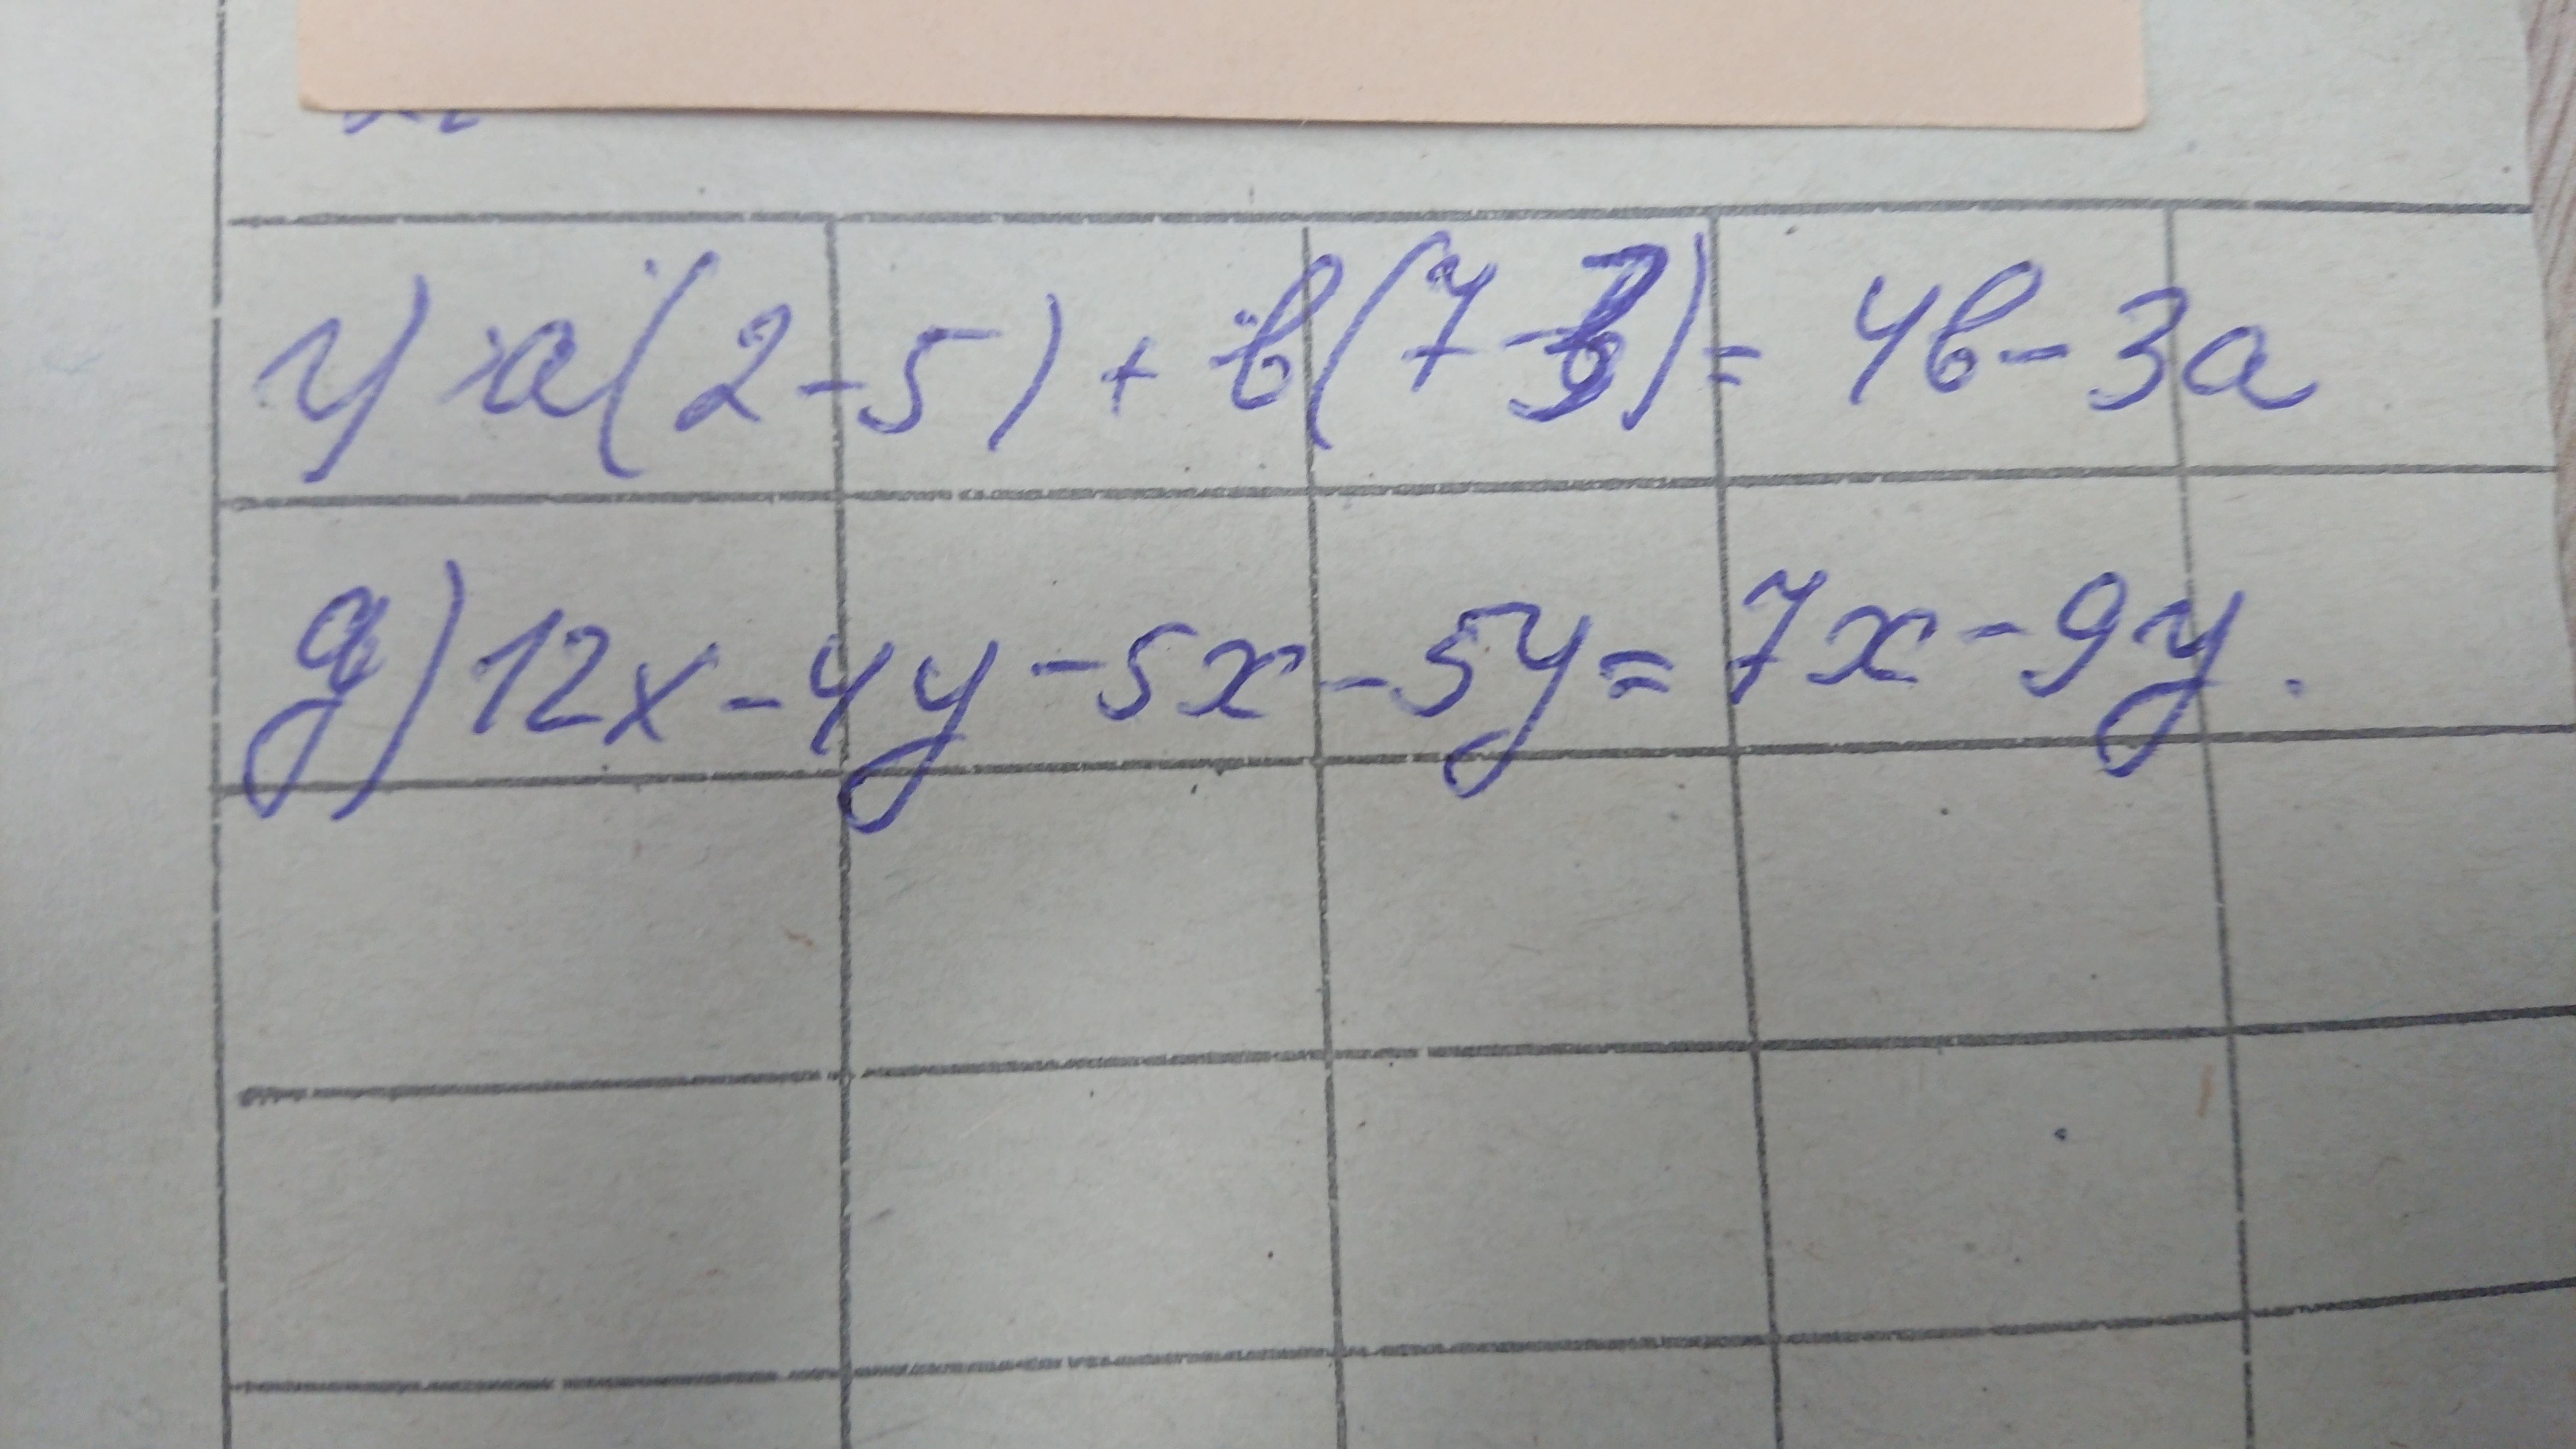 г) a(2-5) + b(7-3) = 4b-3a
д) 12x-4y-5x-5y=7x-9y.